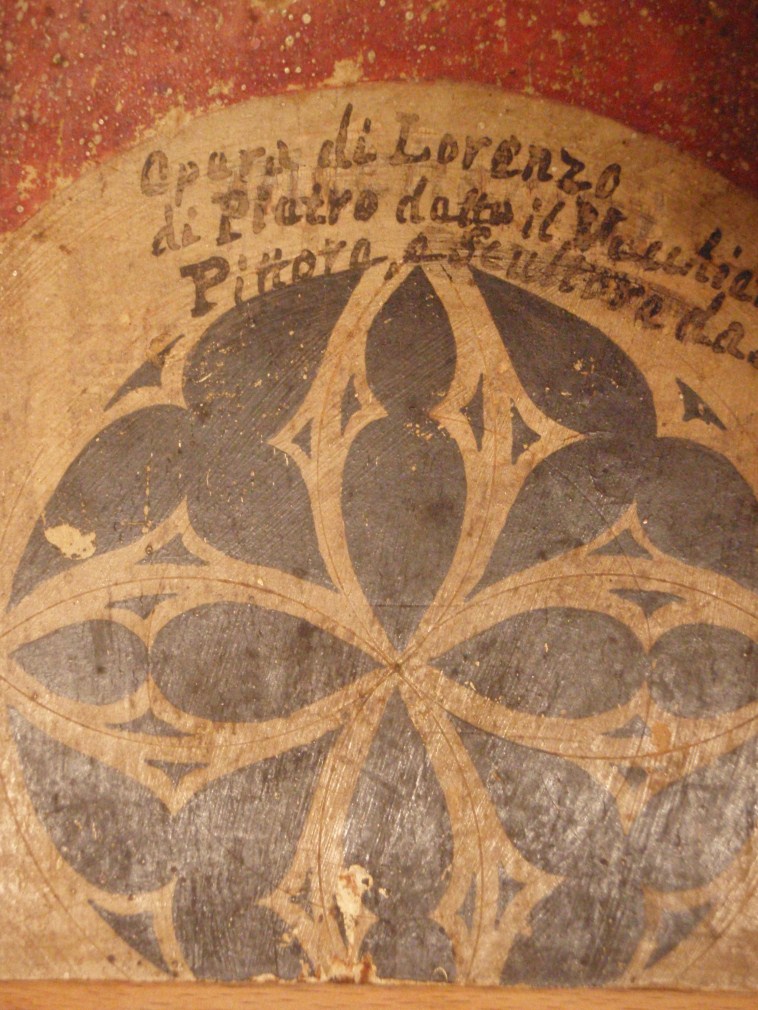 Opera di Lorenzo
di Pietro detto il Vecchie
Pittore, e Scultore da